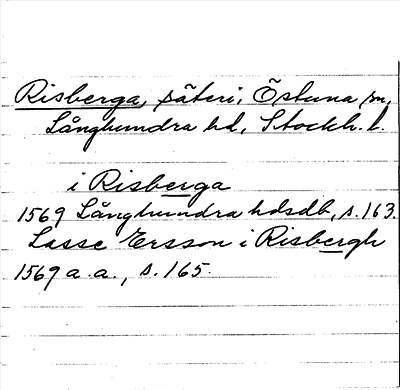 Risberga, säteri, Östuna sn,
Långhundra hd, Stockh. l.
i Risberga
1569 Långhundra hdsdb, s. 163.
Lasse Ersson i Risbergh
1569 a. a., s. 165.